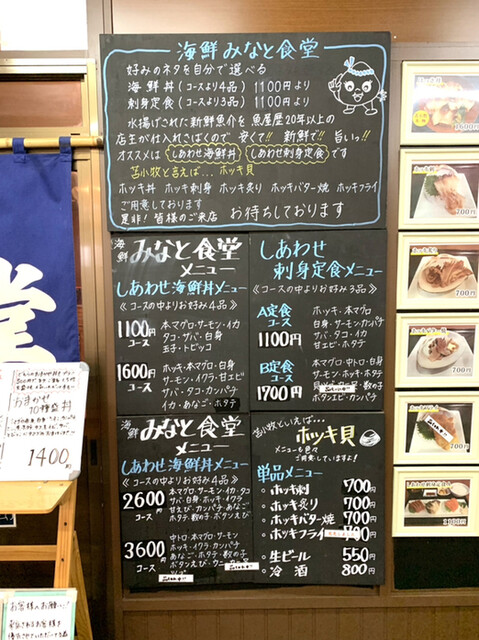 海鮮みなと食堂
好みのネタを自分で選べる
海鮮丼(コースより4品) 1100円より
刺身定食(コースより3品) 1100円より
水揚げされた新鮮魚介を魚屋歴20年以上の
店主が仕入れさばくので 安くて!! 新鮮で!! 旨いっ!!
オススメは しあわせ海鮮丼 しあわせ刺身定食 です
苫小牧と言えば… ホッキ貝
ホッキ丼 ホッキ刺身 ホッキ炙り ホッキバター焼 ホッキフライ
ご用意しております
是非!皆様のご来店 お待ちしております
海鮮 みなと食堂
メニュー
しあわせ海鮮丼メニュー
《コースの中よりお好み4品》
1100円
コース
本マグロ・サーモン・イカ
タコ・サバ・白身
玉子・トビッコ
1600円
コース
ホッキ・本マグロ・白身
サーモン・イクラ・甘エビ
サバ・タコ・カンパチ
イカ・あなご・ホタテ
しあわせ
刺身定食メニュー
《コースの中よりお好み3品》
A定食
コース
1100円
ホッキ・本マグロ
白身・サーモン・カンパチ
サバ・タコ・イカ
甘エビ・ホタテ
B定食
コース
1700円
本マグロ・中トロ・白身
サーモン・ホッキ・ホタテ
数の子
ボタンエビ・カンパチ
海鮮 みなと食堂
メニュー
しあわせ海鮮丼メニュー
《コースの中よりお好み4品》
2600円
コース
本マグロ・サーモン・イカ・タコ
サバ・白身・ホッキ・イクラ
甘えび・カンパチ・あなご
ホタテ・数の子・ボタンえび
3600円
コース
中トロ・本マグロ・サーモン
ホッキ・イクラ・カンパチ
あなご・ホタテ・数の子
ボタンえび・ウニ
苫小牧といえば…
ホッキ貝
メニューも色々
ご用意していますよ!
単品メニュー
ホッキ刺 700円
ホッキ炙り 700円
ホッキバター焼 700円
ホッキフライ
生ビール 550円
冷酒 800円
おまかせ
10種盛丼
1400円
お客様へお願い!
700円
700円
700円
700円
1100円